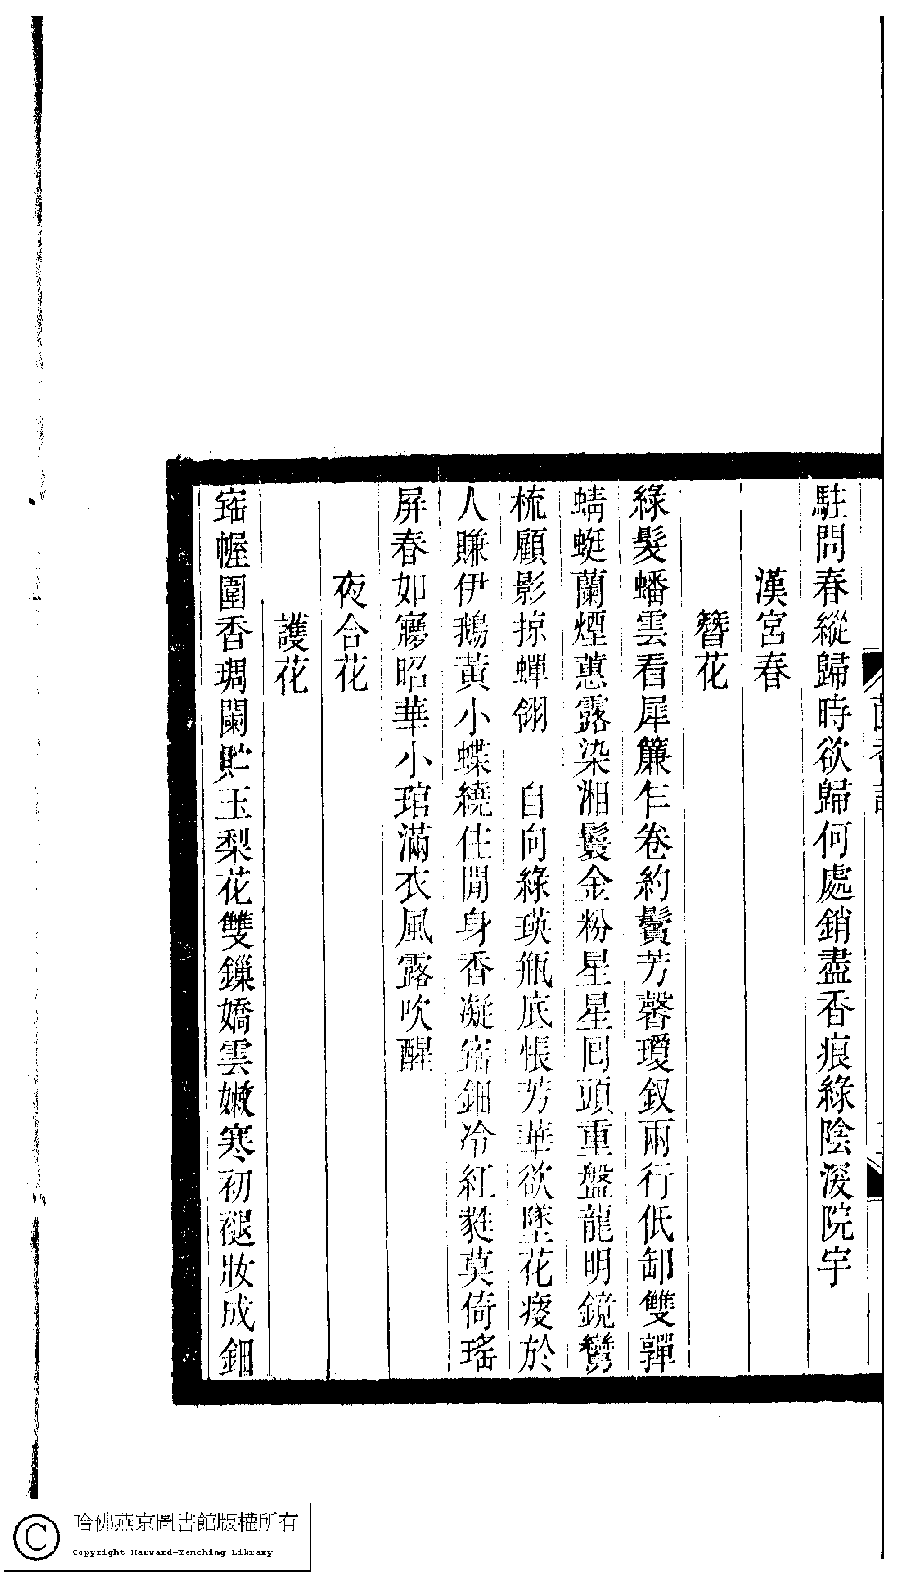 駐問春縱歸時欲歸何處銷盡香痕綠陰深院宇
漢宮春
簪花
綠髮蟠雲看犀簾乍卷約鬢芳馨瓊釵兩行低卸雙嚲
蜻蜓蘭煙蕙露染湘鬟金粉星星回頭重盤龍明鏡鸞
梳顧影掠蟬翎　自向綠瑛瓶底悵芳華欲墜花瘦於
人賺伊鵝黃小蝶繞住閒身香凝窩鈿冷紅蕤莫倚瑤
屏春如㝱昭華小琯滿衣風露吹醒
夜合花
護花
窰幄圍香琱闌貯玉梨花雙鏁嬌雲嫩寒初褪妝成鈿
哈佛燕京圖書館版權所有
Copyright Harvard-Yenching Library